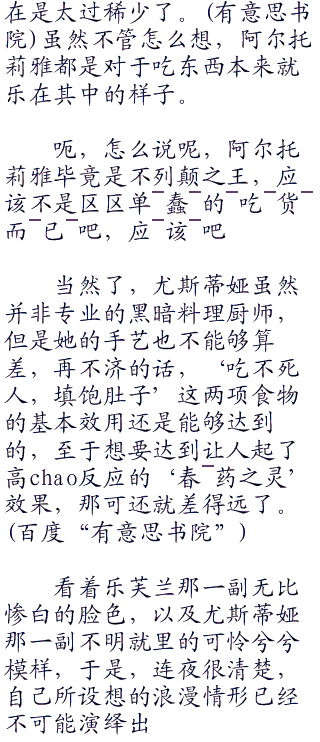 在是太过稀少了。(有意思书
院)虽然不管怎么想，阿尔托
莉雅都是对于吃东西本来就
乐在其中的样子。
呃，怎么说呢，阿尔托
莉雅毕竟是不列颠之王，应
该不是区区单¯蠢¯的¯吃¯货¯
而¯已¯吧，应¯该¯吧
当然了，尤斯蒂娅虽然
并非专业的黑暗料理厨师，
但是她的手艺也不能够算
差，再不济的话，‘吃不死
人，填饱肚子’这两项食物
的基本效用还是能够达到
的，至于想要达到让人起了
高chao反应的‘春¯药之灵’
效果，那可还就差得远了。
(百度“有意思书院”)
看着乐芙兰那一副无比
惨白的脸色，以及尤斯蒂娅
那一副不明就里的可怜兮兮
模样，于是，连夜很清楚，
自己所设想的浪漫情形已经
不可能演绎出